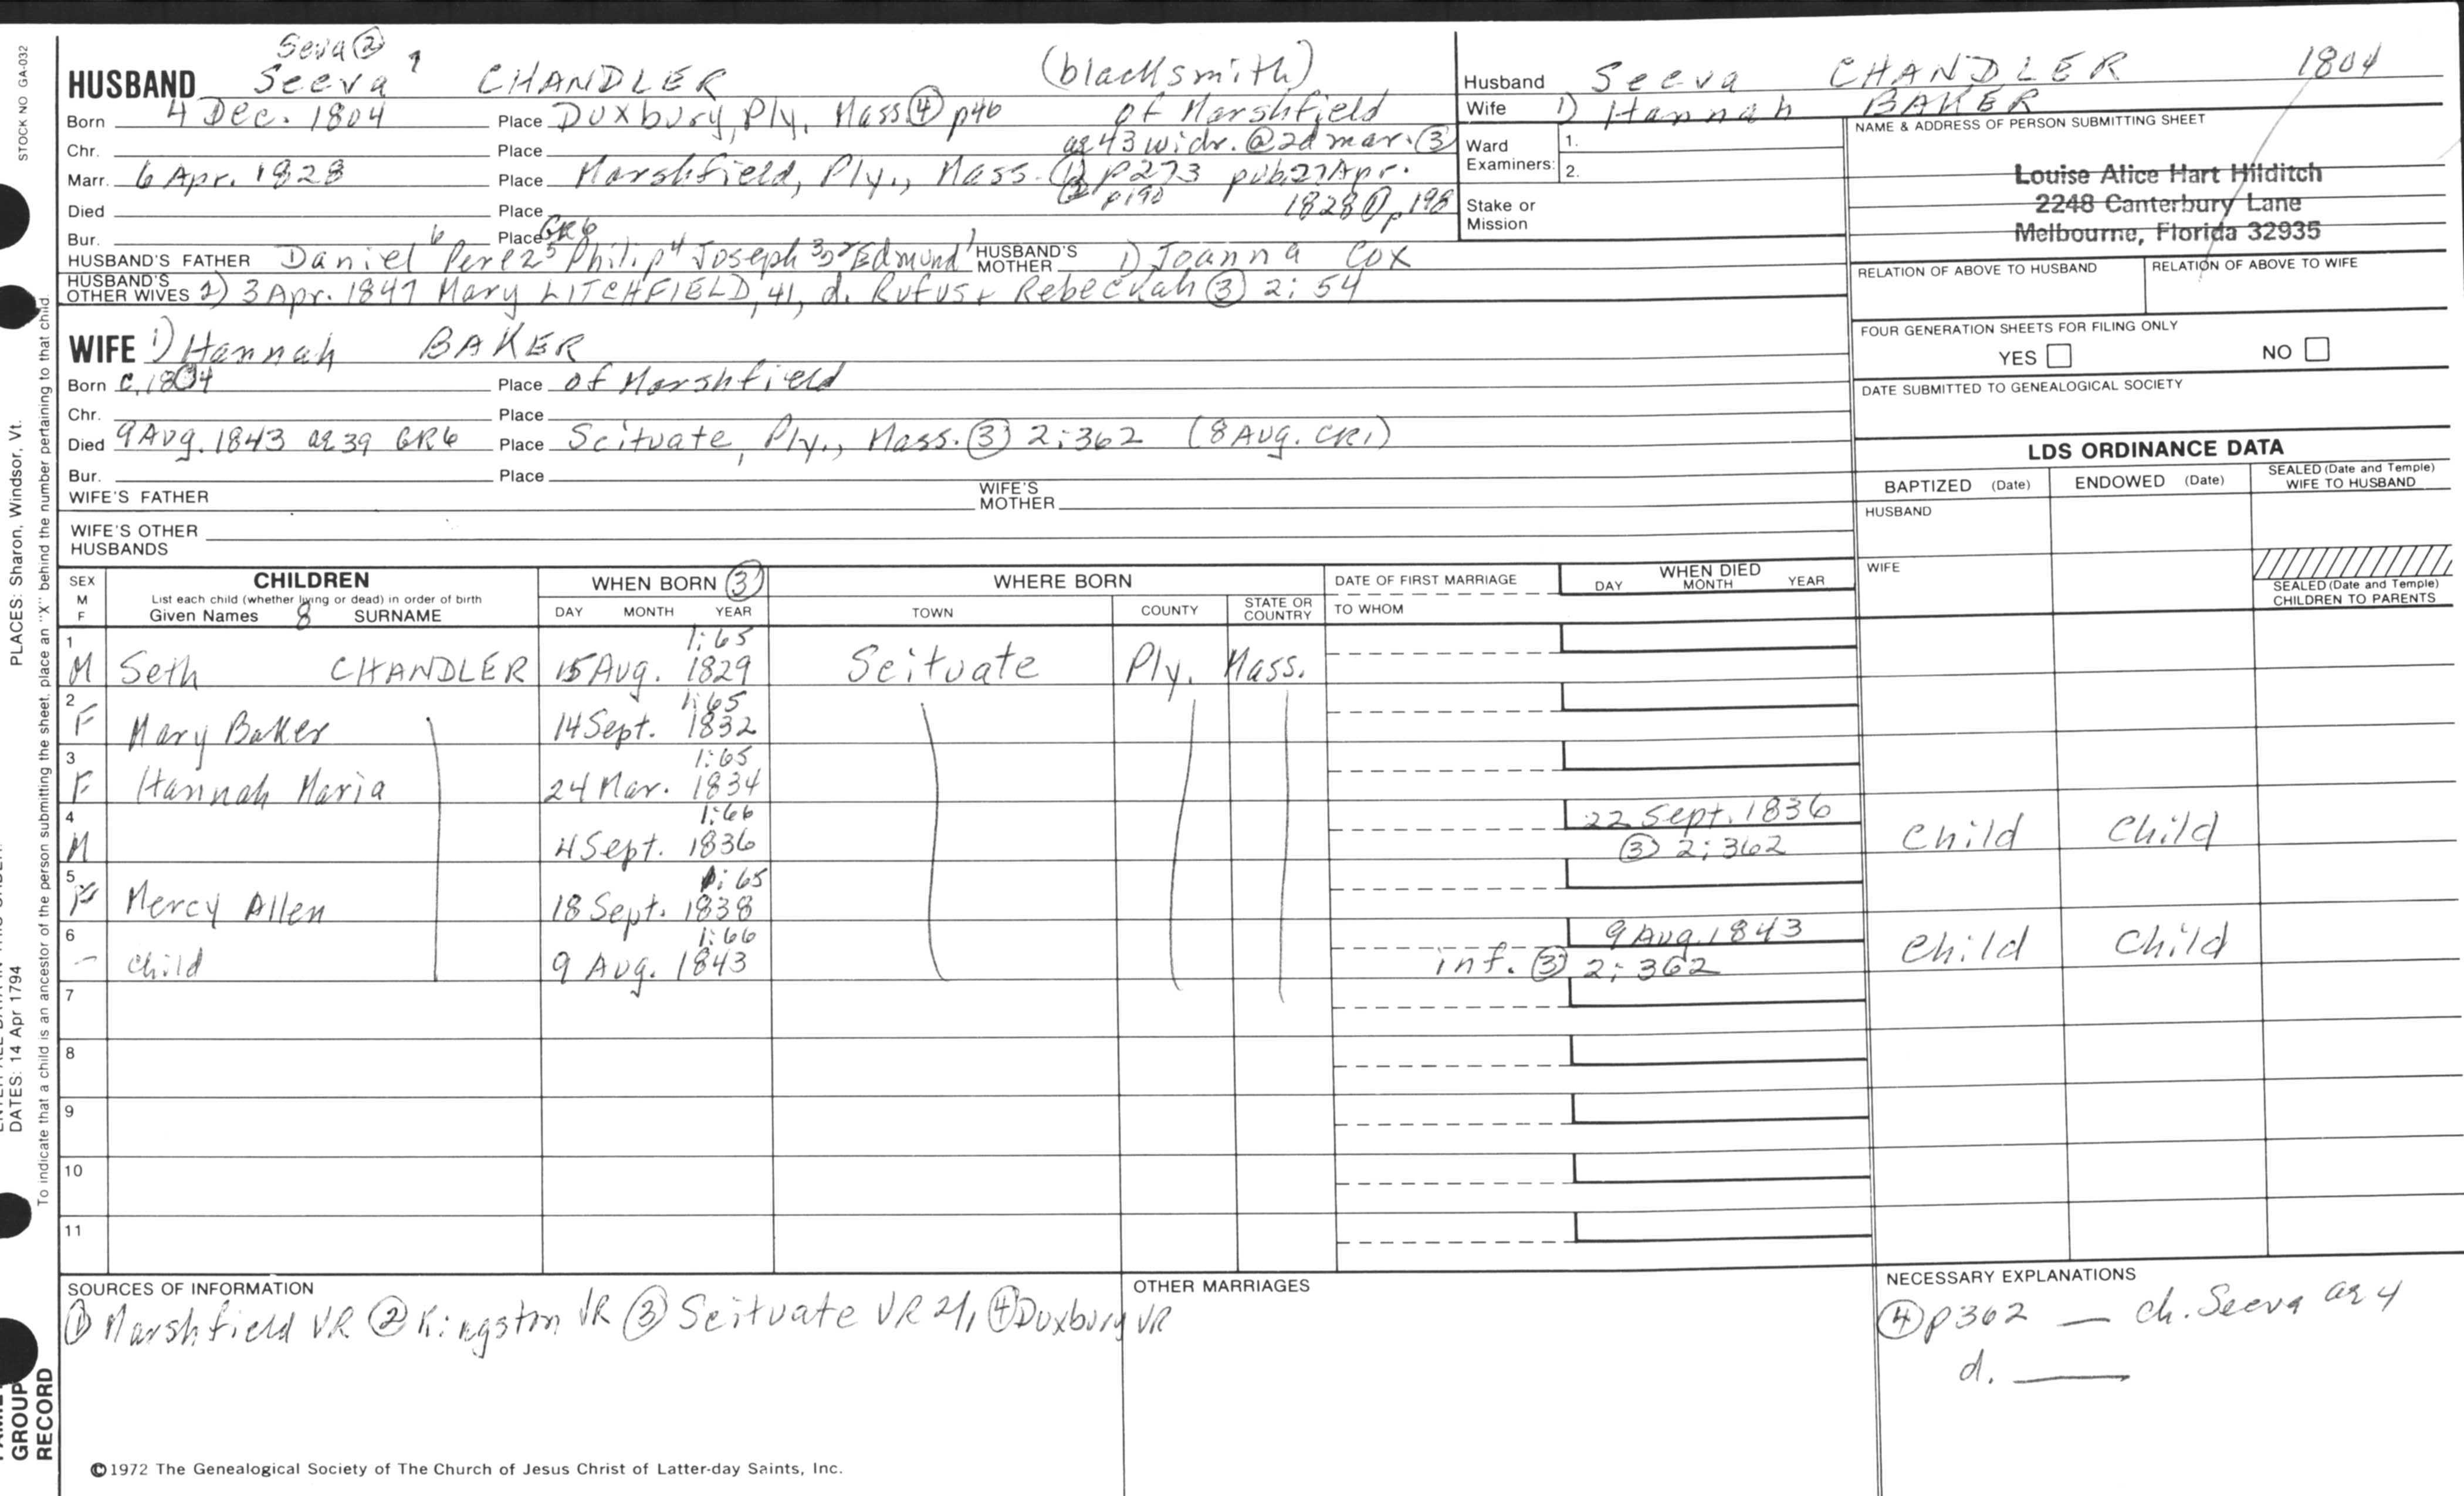 STOCK NO GA-032
PLACES: Sharon, Windsor, Vt.
DATES: 14 Apr 1794
To indicate that a child is an ancestor of the person submitting the sheet, place an "X" behind the number pertaining to that child.
GROUP
RECORD
Seva ②
HUSBAND Seeva 7 CHANDLER (blacksmith)
Born 4 Dec. 1804 Place Duxbury, Ply, Mass ④ p46 of Marshfield
Chr. Place ae 43 widr. @ 2d mar. ③
Marr. 6 Apr. 1828 Place Marshfield, Ply., Mass. ① p273 pub. 27 Apr.
② p190 1828 ① p198
Died Place
Bur. Place GR6
HUSBAND'S FATHER Daniel 6 Perez 5 Philip 4 Joseph 3,2 Edmund 1 HUSBAND'S MOTHER 1) Joanna COX
HUSBAND'S OTHER WIVES 2) 3 Apr. 1847 Mary LITCHFIELD, 41, d. Rufus + Rebeckah ③ 2:54
WIFE 1) Hannah BAKER
Born c. 1804 Place of Marshfield
Chr. Place
Died 9 Aug. 1843 ae 39 GR6 Place Scituate, Ply., Mass. ③ 2:362 (8 Aug. CR1)
Bur. Place
WIFE'S FATHER WIFE'S MOTHER
WIFE'S OTHER HUSBANDS
Husband Seeva CHANDLER 1804
Wife 1) Hannah BAKER
Ward 1.
Examiners: 2.
Stake or
Mission
NAME & ADDRESS OF PERSON SUBMITTING SHEET
Louise Alice Hart Hilditch
2248 Canterbury Lane
Melbourne, Florida 32935
RELATION OF ABOVE TO HUSBAND RELATION OF ABOVE TO WIFE
FOUR GENERATION SHEETS FOR FILING ONLY
YES NO
DATE SUBMITTED TO GENEALOGICAL SOCIETY
LDS ORDINANCE DATA
BAPTIZED (Date) ENDOWED (Date) SEALED (Date and Temple) WIFE TO HUSBAND
HUSBAND
WIFE
SEALED (Date and Temple) CHILDREN TO PARENTS
SEX M F CHILDREN WHEN BORN ③ WHERE BORN DATE OF FIRST MARRIAGE WHEN DIED
List each child (whether living or dead) in order of birth
Given Names 8 SURNAME DAY MONTH YEAR TOWN COUNTY STATE OR COUNTRY TO WHOM DAY MONTH YEAR
1 1:65
M Seth CHANDLER 15 Aug. 1829 Scituate Ply. Mass.
2 1:65
F Mary Baker 14 Sept. 1832
3 1:65
F Hannah Maria 24 Mar. 1834
4 1:66 22 Sept. 1836
M 4 Sept. 1836 ③ 2:362 Child Child
5 1:65
F Mercy Allen 18 Sept. 1838
6 1:66 9 Aug. 1843
— child 9 Aug. 1843 inf. ③ 2:362 Child Child
7
8
9
10
11
SOURCES OF INFORMATION
① Marshfield VR ② Kingston VR ③ Scituate VR ④ Duxbury VR
OTHER MARRIAGES
NECESSARY EXPLANATIONS
④ p362 — ch. Seeva ae 4
d. ——
©1972 The Genealogical Society of The Church of Jesus Christ of Latter-day Saints, Inc.